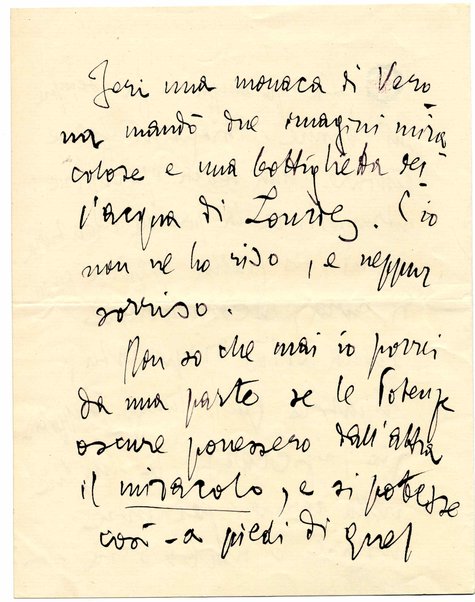 Jeri una monaca di Vero
na mandò due imagini mira
colose e una bottiglietta del
l'acqua di Lourdes. E io
non ne ho riso, e neppur
sorriso.
Non so che mai io porrei
da una parte se le Potenze
oscure ponessero dall'altra
il miracolo, e si potesse
così - a piedi di quel